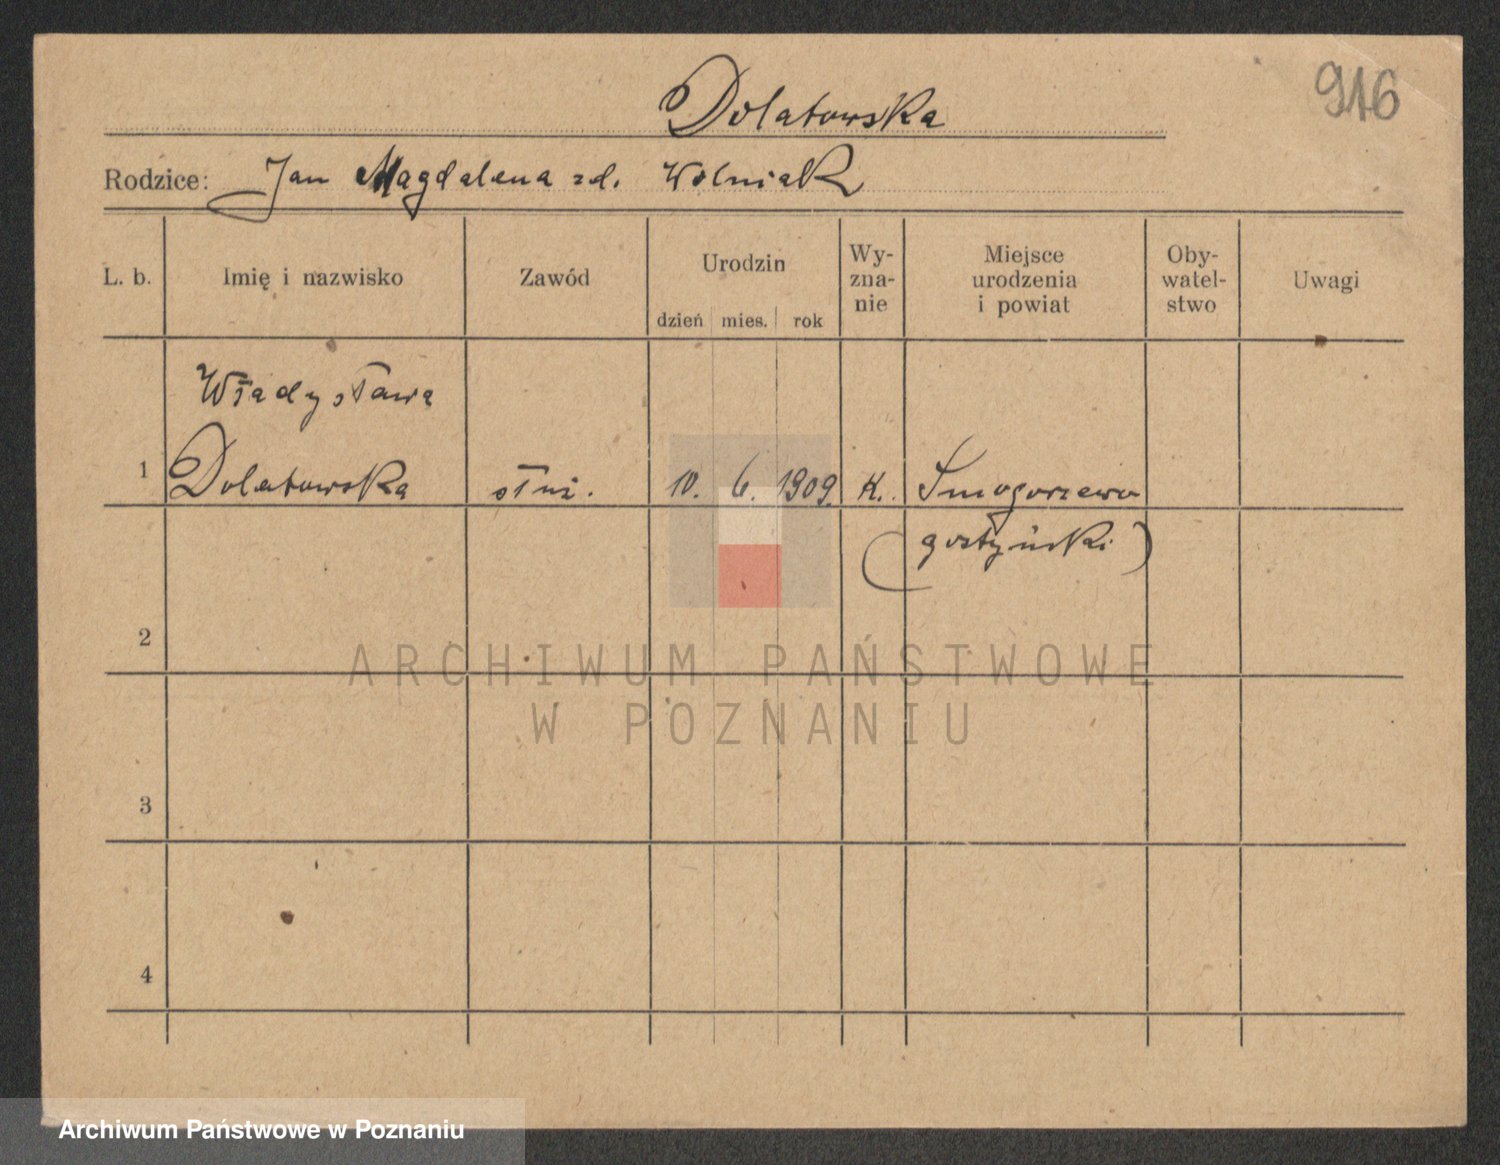 916
Dolatowska
Rodzice: Jan Magdalena zd. Wolniak
L. b.
Imię i nazwisko
Zawód
Urodzin
dzień mies. rok
Wy-
zna-
nie
Miejsce
urodzenia
i powiat
Oby-
watel-
stwo
Uwagi
Władysława
1 Dolatowska służ. 10. 6. 1909 K. Smogorzewo
(gostyński)
2
ARCHIWUM PAŃSTWOWE
W POZNANIU
3
4
Archiwum Państwowe w Poznaniu